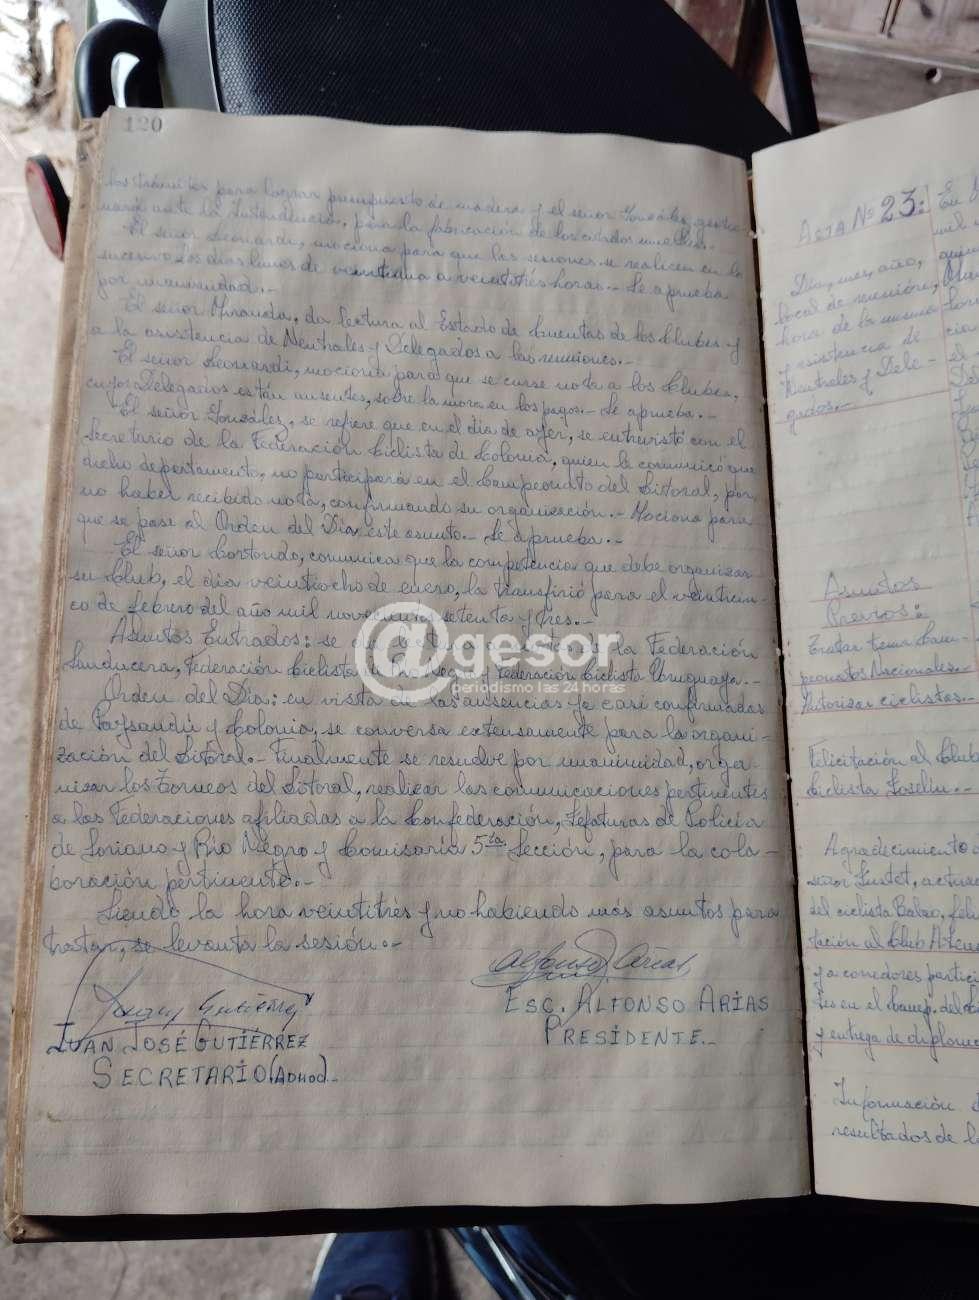 120
los trámites para lograr presupuesto de madera y el señor González, gestio-
nará ante la Intendencia, para la fabricación de los
El señor Leonardi, mociona para que las sesiones se realicen en lo
sucesivo los días lunes de veintiuna a veintitrés horas.- Se aprueba
por unanimidad.-
El señor Miranda, da lectura al Estado de Cuentas de los Clubes y
a la asistencia de Neutrales y Delegados a las reuniones.-
El señor Leonardi, mociona para que se curse nota a los Clubes,
cuyos Delegados están ausentes, sobre la mora en los pagos.- Se aprueba.-
El señor González, se refiere que en el día de ayer, se entrevistó con el
Secretario de la Federación Ciclista de Colonia, quien le comunicó que
dicho departamento, no participará en el Campeonato del Litoral, por
no haber recibido nota, confirmando su organización.- Mociona para
que se pase al Orden del Día, este asunto.- Se aprueba.-
El señor comunica que la competencia que debe organizar
su Club, el día veintiocho de enero, la transfirió para el veinticin-
co de febrero del año mil novecientos setenta y tres.-
Asuntos Entrados: se da lectura a notas de la Federación
Sanducera, Federación Ciclista de Río Negro y Federación Ciclista Uruguaya.-
Orden del Día: en vista de las ausencias ya casi confirmadas
de Paysandú y Colonia, se conversa extensamente para la organi-
zación del Litoral.- Finalmente se resuelve por unanimidad, orga-
nizar los Torneos del Litoral, realizar las comunicaciones pertinentes
a las Federaciones afiliadas a la Confederación, Jefaturas de Policía
de Soriano y Río Negro y Comisaría 5ta Sección, para la cola-
boración pertinente.-
Siendo la hora veintitrés y no habiendo más asuntos para
tratar, se levanta la sesión.-
Alfonso Arias
ESC. ALFONSO ARIAS
PRESIDENTE.-
JUAN JOSÉ GUTIÉRREZ
SECRETARIO (ADHOC).-
@gesor
periodismo las 24 horas
ACTA Nº 23:
Día, mes, año,
local de reunión,
hora de la misma
y asistencia de
Neutrales y Dele-
gados.-
Asuntos
Previos:
Tratar tema Cam-
peonatos Nacionales.-
Autorizar ciclistas.-
Felicitación al Club
Ciclista Joselín.-
Agradecimiento
señor
del ciclista
tación al Club
y a corredores
tes en el Camp. del
y entrega de diplomas
Información
resultados de